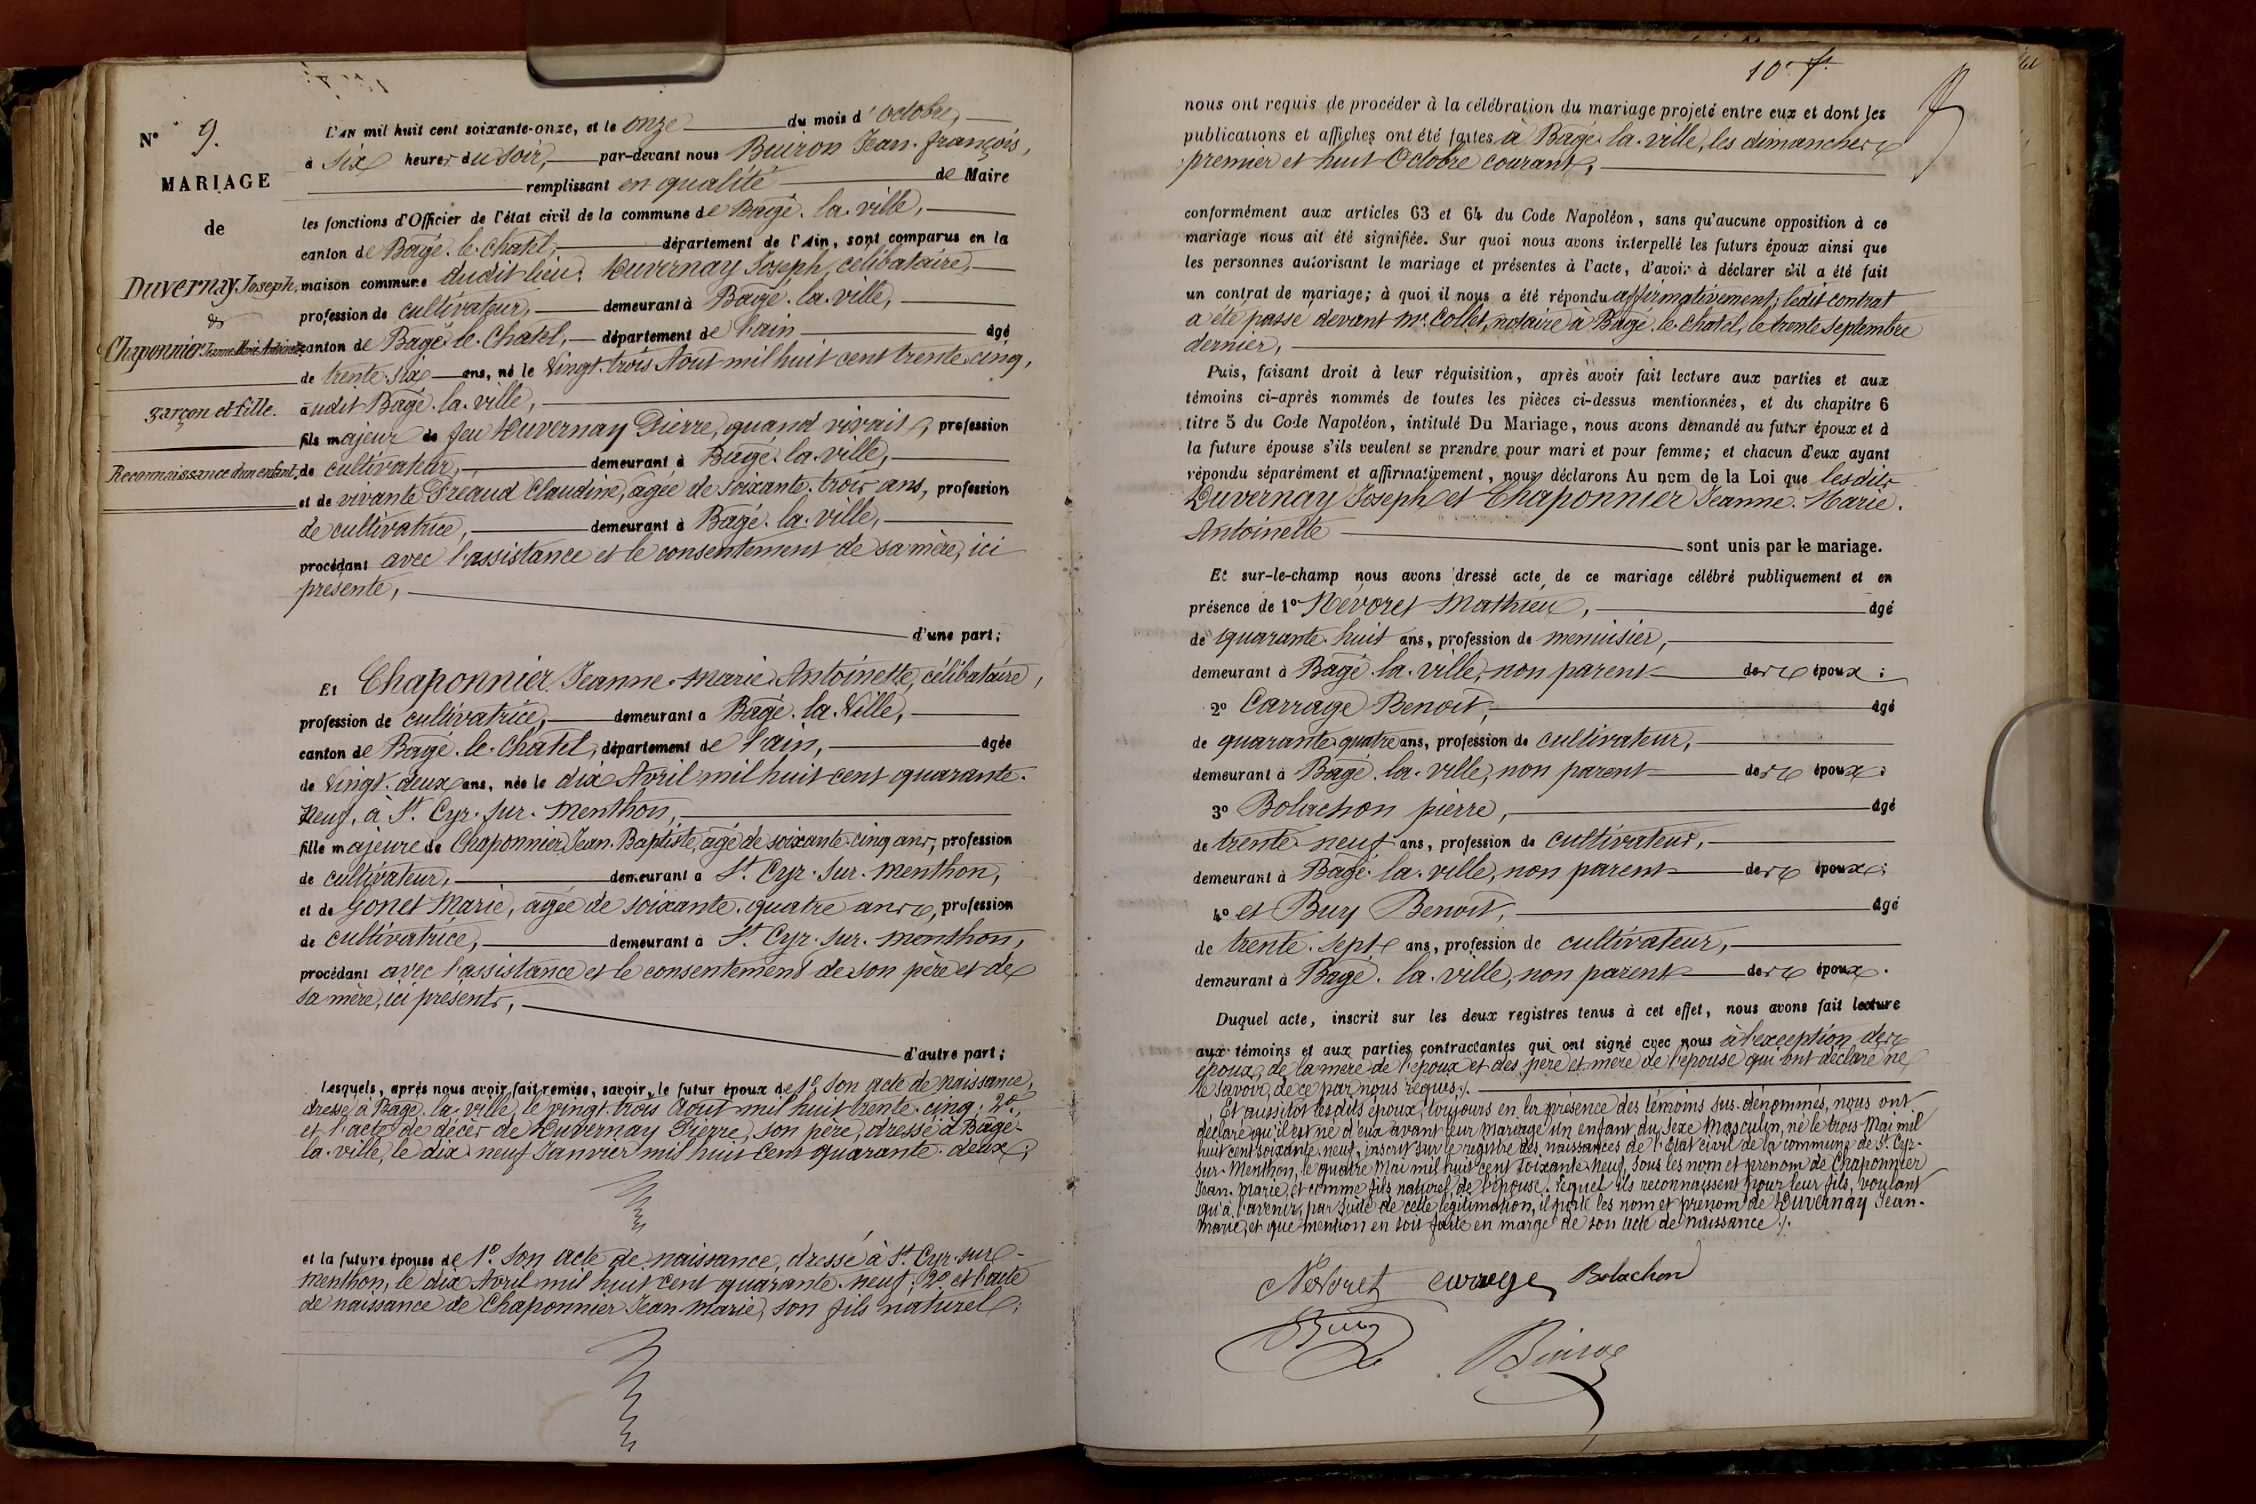 N° 9.
MARIAGE
de
Duvernay Joseph,
&
Chaponnier Jeanne Marie Antoinette
garçon et fille.
Reconnaissance d'un enfant.
L'AN mil huit cent soixante-onze, et le onze du mois d'octobre,
à six heures du soir, par-devant nous Buiron Jean-François,
remplissant en qualité de Maire
les fonctions d'Officier de l'état civil de la commune de Bagé-la-ville,
canton de Bagé-le-Chatel, département de l'Ain, sont comparus en la
maison commune dudit lieu: Duvernay Joseph, célibataire,
profession de cultivateur, demeurant à Bagé-la-ville,
canton de Bagé-le-Chatel, département de l'ain âgé
de trente-six ans, né le vingt-trois Aout mil huit cent trente-cinq,
audit Bagé-la-ville,
fils majeur de feu Duvernay Pierre, quand vivait, profession
de cultivateur, demeurant à Bagé-la-ville,
et de vivante Préaud Claudine, agée de soixante-trois ans, profession
de cultivatrice, demeurant à Bagé-la-ville,
procédant avec l'assistance et le consentement de sa mère, ici
présente,
d'une part;
Et Chaponnier Jeanne-Marie-Antoinette, célibataire,
profession de cultivatrice, demeurant à Bagé-la-Ville,
canton de Bagé-le-Chatel, département de l'ain, âgée
de vingt-deux ans, née le dix Avril mil huit cent quarante-
neuf, à St Cyr-sur-Menthon,
fille majeure de Chaponnier Jean-Baptiste, agé de soixante-cinq ans, profession
de cultivateur, demeurant à St Cyr-sur-Menthon,
et de Gonet Marie, agée de soixante-quatre ans, profession
de cultivatrice, demeurant à St Cyr-sur-Menthon,
procédant avec l'assistance et le consentement de son père et de
sa mère, ici présents,
d'autre part;
Lesquels, après nous avoir fait remise, savoir, le futur époux de 1° son acte de naissance,
dressé à Bagé-la-ville, le vingt-trois Aout mil huit trente-cinq; 2°,
et l'acte de décès de Duvernay Pierre, son père, dressé à Bagé-
la-ville, le dix-neuf Janvier mil huit cent quarante-deux;
et la future épouse de 1° son acte de naissance, dressé à St Cyr-sur-
Menthon, le dix Avril mil huit cent quarante-neuf; 2° et l'acte
de naissance de Chaponnier Jean Marie, son fils naturel;
10e f.
nous ont requis de procéder à la célébration du mariage projeté entre eux et dont les
publications et affiches ont été faites à Bagé-la-ville, les dimanches
premier et huit Octobre courant,
conformément aux articles 63 et 64 du Code Napoléon, sans qu'aucune opposition à ce
mariage nous ait été signifiée. Sur quoi nous avons interpellé les futurs époux ainsi que
les personnes autorisant le mariage et présentes à l'acte, d'avoir à déclarer s'il a été fait
un contrat de mariage; à quoi il nous a été répondu affirmativement; ledit contrat
a été passé devant Me Collet, notaire à Bagé-le-Chatel, le trente septembre
dernier,
Puis, faisant droit à leur réquisition, après avoir fait lecture aux parties et aux
témoins ci-après nommés de toutes les pièces ci-dessus mentionnées, et du chapitre 6
titre 5 du Code Napoléon, intitulé Du Mariage, nous avons demandé au futur époux et à
la future épouse s'ils veulent se prendre pour mari et pour femme; et chacun d'eux ayant
répondu séparément et affirmativement, nous déclarons Au nom de la Loi que lesdits
Duvernay Joseph et Chaponnier Jeanne-Marie-
Antoinette
sont unis par le mariage.
Et sur-le-champ nous avons dressé acte de ce mariage célébré publiquement et en
présence de 1° Névoret Mathieu, âgé
de quarante-huit ans, profession de menuisier,
demeurant à Bagé-la-ville, non parent des époux;
2° Carrage Benoit, âgé
de quarante-quatre ans, profession de cultivateur,
demeurant à Bagé-la-ville, non parent des époux;
3° Bolachon pierre, âgé
de trente-neuf ans, profession de cultivateur,
demeurant à Bagé-la-ville, non parent des époux;
4° et Buy Benoit, âgé
de trente-sept ans, profession de cultivateur,
demeurant à Bagé-la-ville, non parent des époux.
Duquel acte, inscrit sur les deux registres tenus à cet effet, nous avons fait lecture
aux témoins et aux parties contractantes qui ont signé avec nous à l'exception des
époux, de la mère de l'époux et des père et mère de l'épouse qui ont déclaré ne
le savoir, de ce par nous requis./.
Et aussitôt lesdits époux, toujours en la présence des témoins sus-dénommés, nous ont
déclaré qu'il est né d'eux avant leur mariage un enfant du sexe masculin, né le trois Mai mil
huit cent soixante-neuf, inscrit sur le registre des naissances de l'Etat civil de la commune de St Cyr-
sur-Menthon, le quatre Mai mil huit cent soixante-neuf, sous les nom et prénom de Chaponnier
Jean-Marie, et comme fils naturel de l'épouse. Lequel ils reconnaissent pour leur fils, voulant
qu'à l'avenir, par suite de cette légitimation, il porte les nom et prénom de Duvernay Jean-
Marie, et que mention en soit faite en marge de son acte de naissance./.
Névoret carrage Bolachon
Buy
Buiron